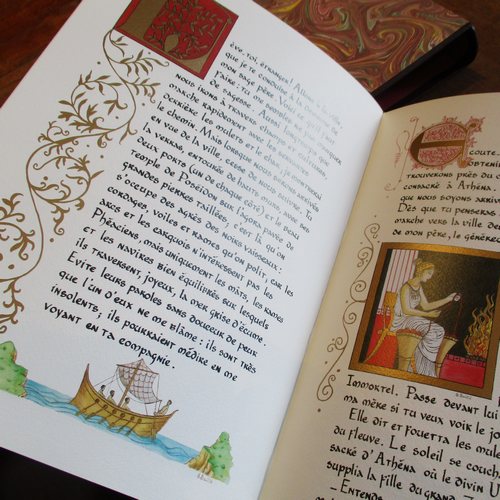 Lève-toi, étranger! Allons à la ville
que je te conduise à la demeure de
mon sage père. Voici ce qu'il faut
faire: tu me sembles ne pas manquer
de sagesse. Aussi longtemps que
nous irons à travers champs et cultures
marche rapidement avec les servantes,
derrière les mulets et le char, je montrerai
le chemin. Mais lorsque nous serons
en vue de la ville, cesse de nous suivre. Tu
la verras, entourée de hauts murs, avec ses
deux ports (un de chaque côté) et le beau
temple de Poséidon sur l'agora pavée de
grandes pierres taillées; c'est là qu'on
s'occupe des agrès des noirs vaisseaux:
cordages, voiles et rames qu'on polit, car les
arcs et les carquois n'intéressent pas les
Phéaciens, mais uniquement les mâts, les rames
et les navires bien équilibrés sur lesquels
ils traversent, joyeux, la mer grise d'écume.
Evite leurs paroles sans douceur de peur
que l'un d'eux ne me blâme: ils sont très
insolents; ils pourraient médire en me
voyant en ta compagnie.
Ecoute
obten
trouverons près du c
consacré à Athéna
que nous soyons arriv
Dès que tu penseras
marche vers la ville de
de mon père, le génére
Immortel. Passe devant lui
ma mère si tu veux voir le jo
Elle dit et fouetta les mule
du fleuve. Le soleil se couch
sacré d'Athéna où le divin U
supplia la Fille du grand
– Entends